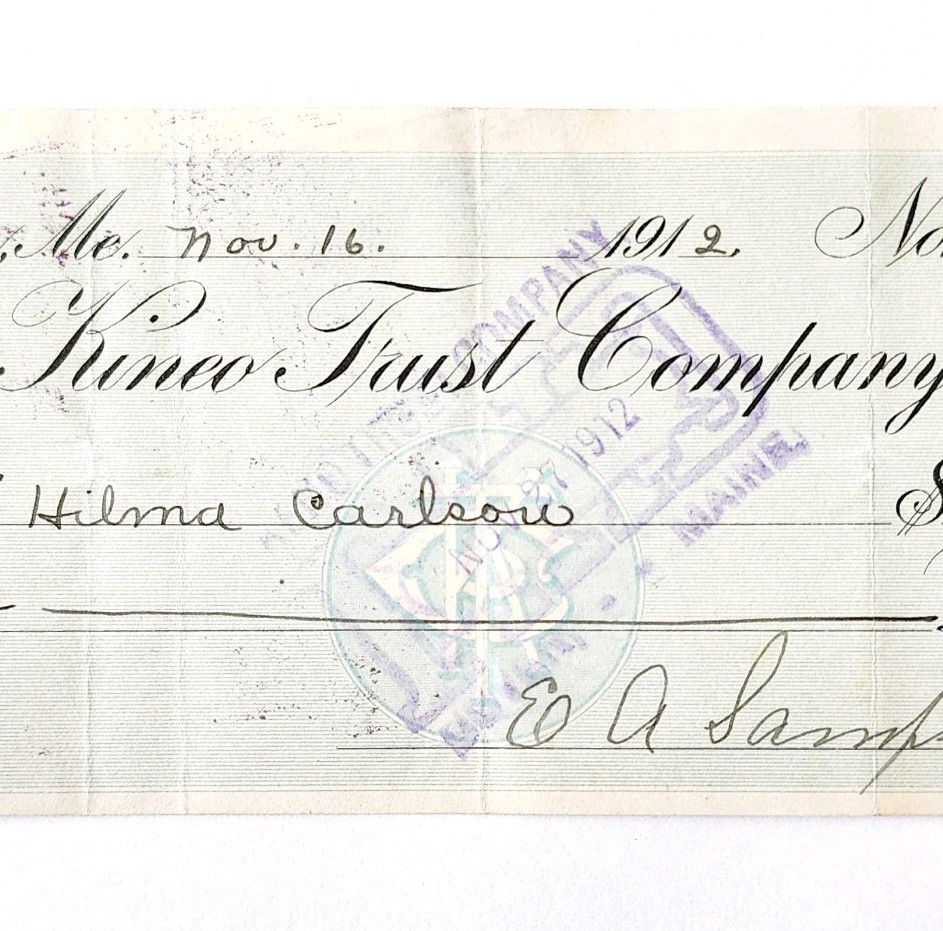 Me. Nov. 16. 1912. No
Kineo Trust Company
Hilma Carlson $
E A Samp
COMPANY
NOV 27 1912
MAINE